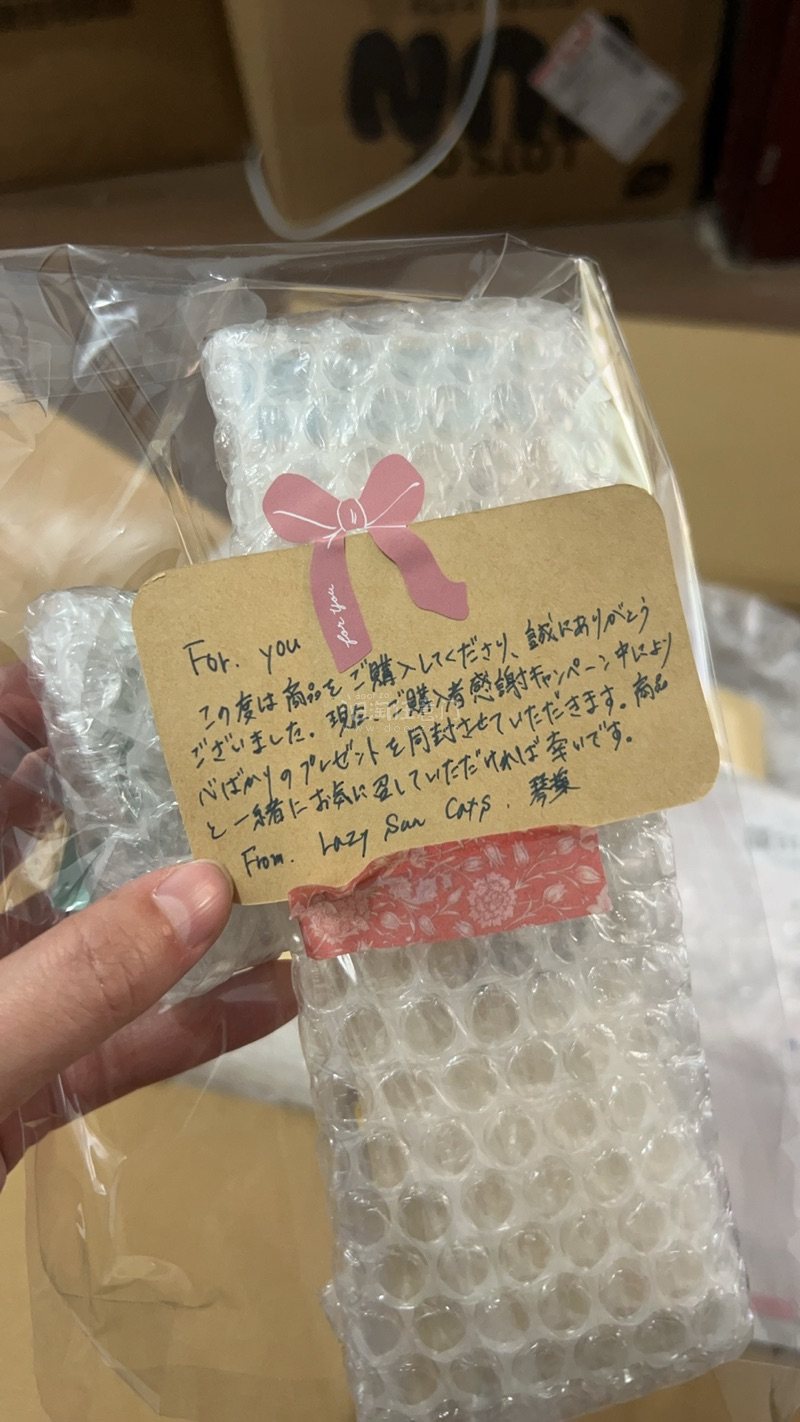 for you
For. you
この度は商品をご購入してくださり、誠にありがとう
ございました。現在、ご購入者感謝キャンペーン中により
心ばかりのプレゼントを同封させていただきます。商品
と一緒にお気に召していただければ幸いです。
From. Lazy Sun Cats.